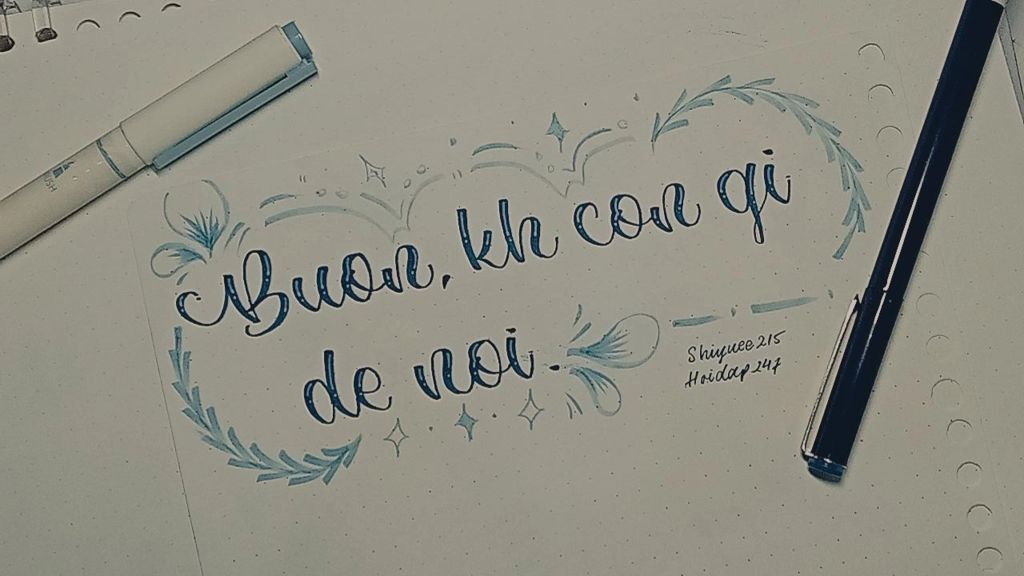 Buon, kh con gi
de noi.
Shiyuee215
Hoidap247